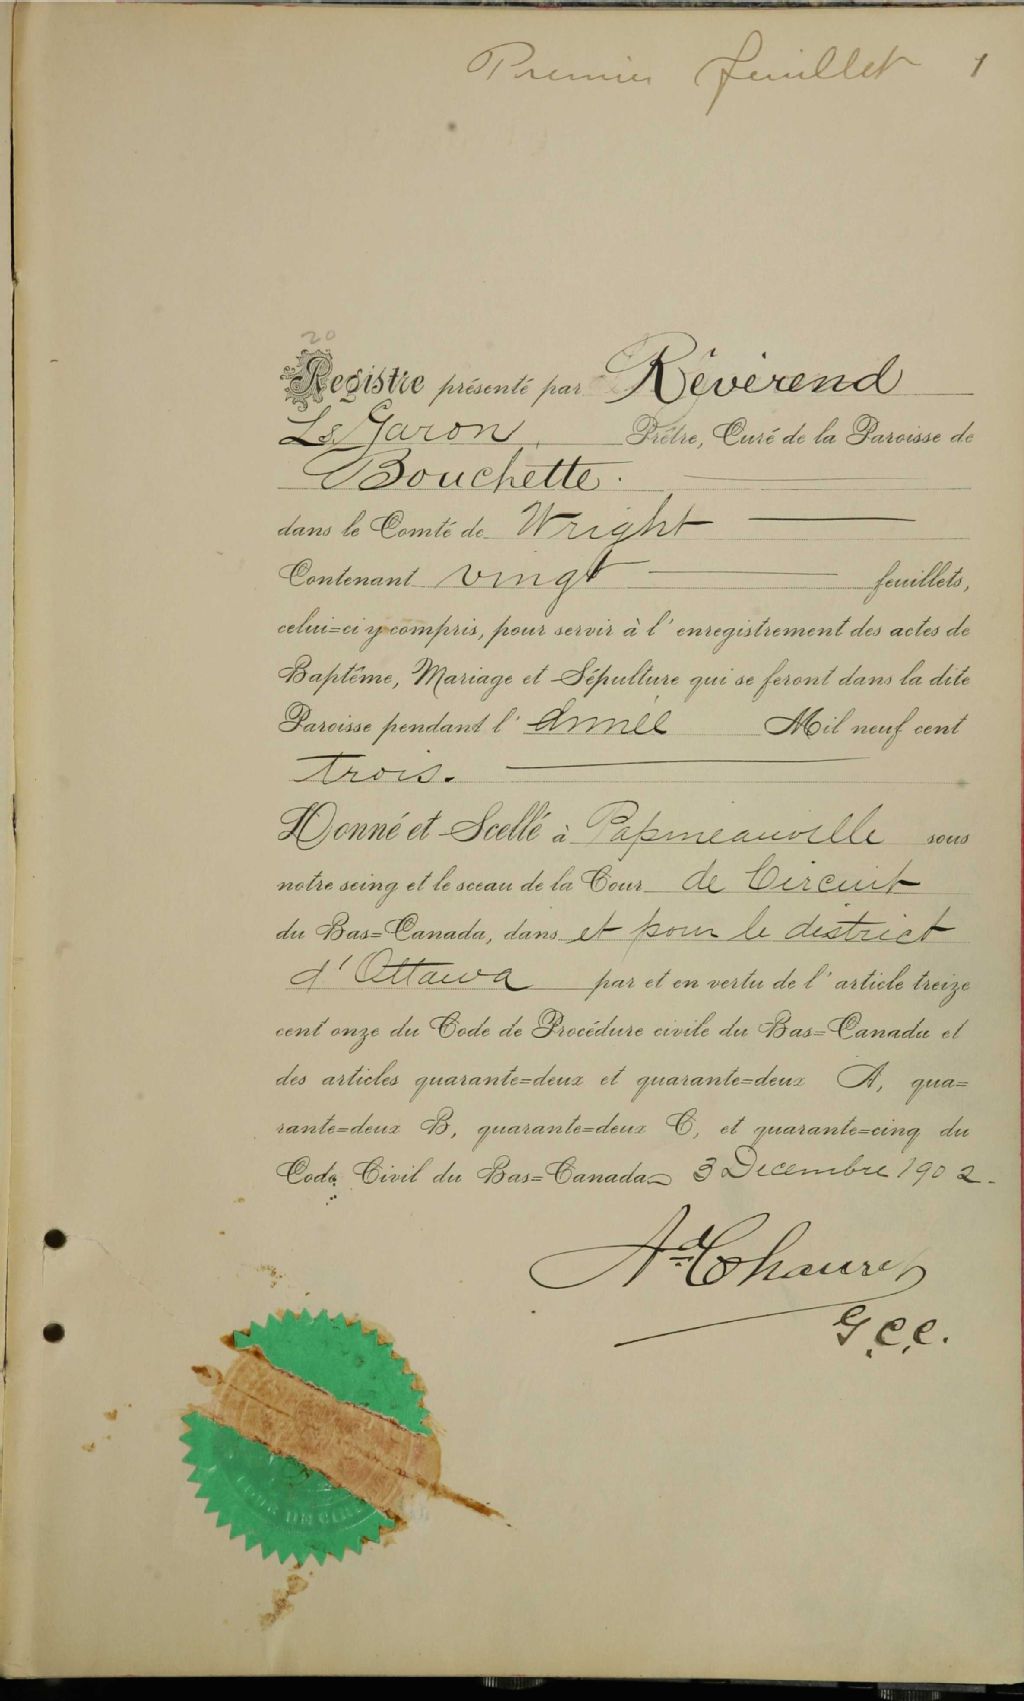 Premier feuillet 1
20
Registre présenté par Révérend
Ls Garon, Prêtre, Curé de la Paroisse de
Bouchette.
dans le Comté de Wright
Contenant vingt feuillets,
celui=ci y compris, pour servir à l'enregistrement des actes de
Baptême, Mariage et Sépulture qui se feront dans la dite
Paroisse pendant l'Année Mil neuf cent
trois.
Donné et Scellé à Papineauville sous
notre seing et le sceau de la Cour de Circuit
du Bas=Canada, dans et pour le district
d'Ottawa par et en vertu de l'article treize
cent onze du Code de Procédure civile du Bas=Canada et
des articles quarante=deux et quarante=deux A, qua=
rante=deux B, quarante=deux C, et quarante=cinq du
Code Civil du Bas=Canada 3 Decembre 1902.
Ad Chauret
G.C.C.